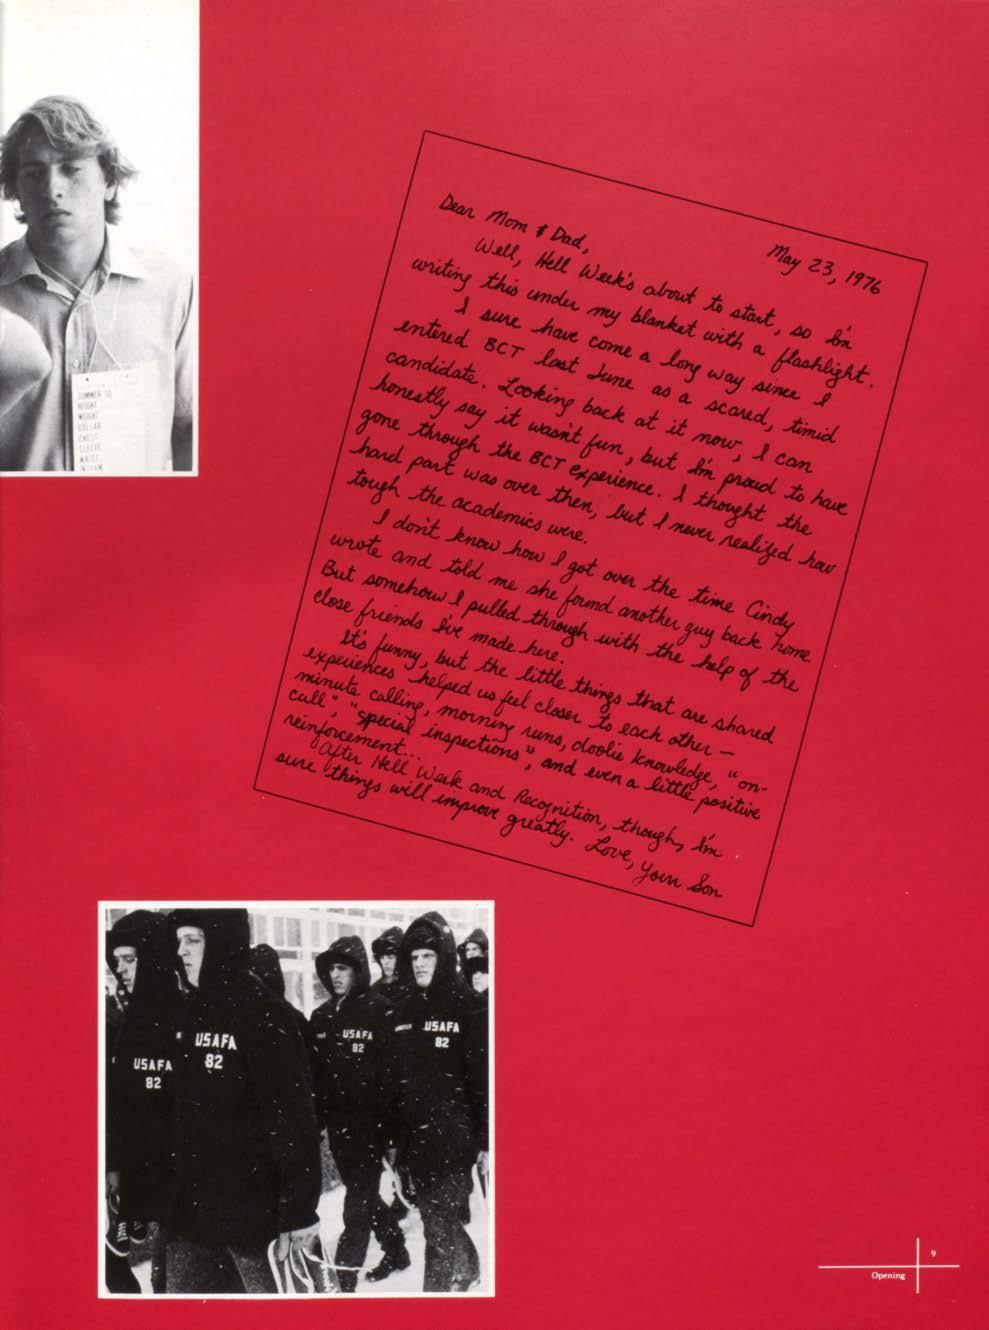 May 23, 1976
Dear Mom & Dad,
Well, Hell Week's about to start, so I'm
writing this under my blanket with a flashlight.
I sure have come a long way since I
entered BCT last June as a scared, timid
candidate. Looking back at it now, I can
honestly say it wasn't fun, but I'm proud to have
gone through the BCT experience. I thought the
hard part was over then, but I never realized how
tough the academics were.
I don't know how I got over the time Cindy
wrote and told me she found another guy back home.
But somehow I pulled through with the help of the
close friends I've made here.
It's funny, but the little things that are shared
experiences helped us feel closer to each other —
minute calling, morning runs, doolie knowledge, "on-
call", "special inspections", and even a little positive
reinforcement...
After Hell Week and Recognition, though, I'm
sure things will improve greatly. Love, Your Son
SUMMER
HEIGHT
WEIGHT
COLLAR
CHEST
SLEEVE
WAIST
INSEAM
USAFA
82
USAFA
82
USAFA
82
USAFA
82
9
Opening